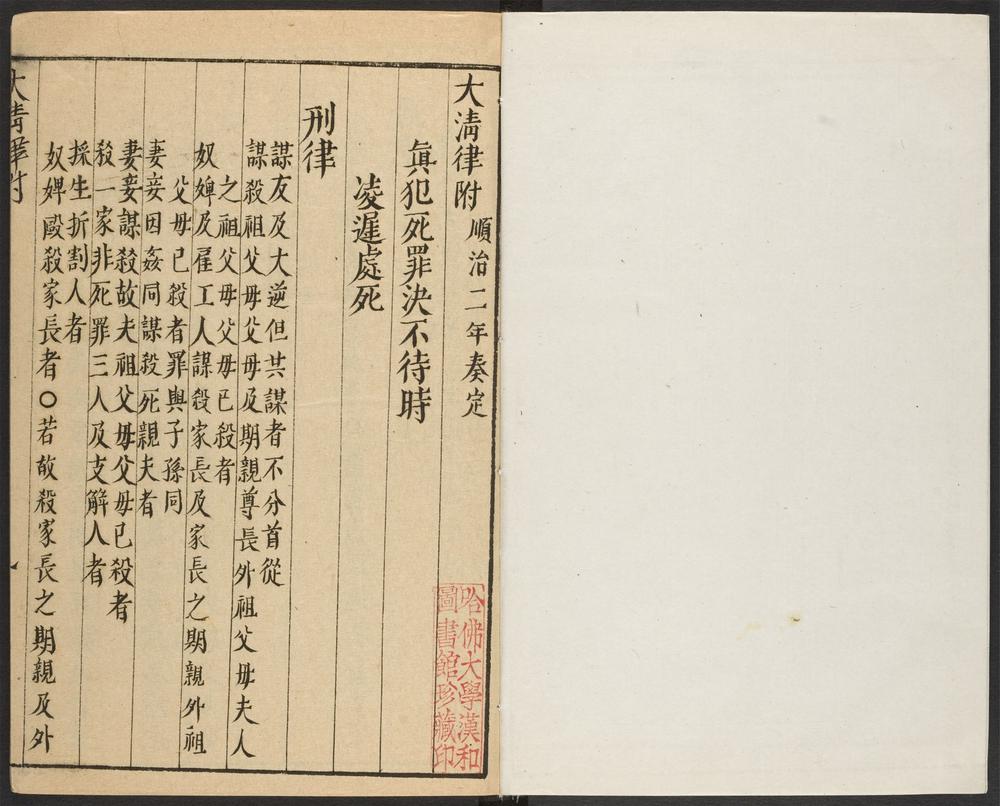 大清律附順治二年奏定
眞犯死罪決不待時
凌遲處死
刑律
謀反及大逆但共謀者不分首從
謀殺祖父母父母及期親尊長外祖父母夫人
之祖父母父母已殺者
奴婢及雇工人謀殺家長及家長之期親外祖
父母已殺者罪與子孫同
妻妾因姦同謀殺死親夫者
妻妾謀殺故夫祖父母父母已殺者
殺一家非死罪三人及支解人者
採生折割人者
奴婢毆殺家長者○若故殺家長之期親及外
大清律附
哈佛大學漢和
圖書館珍藏印